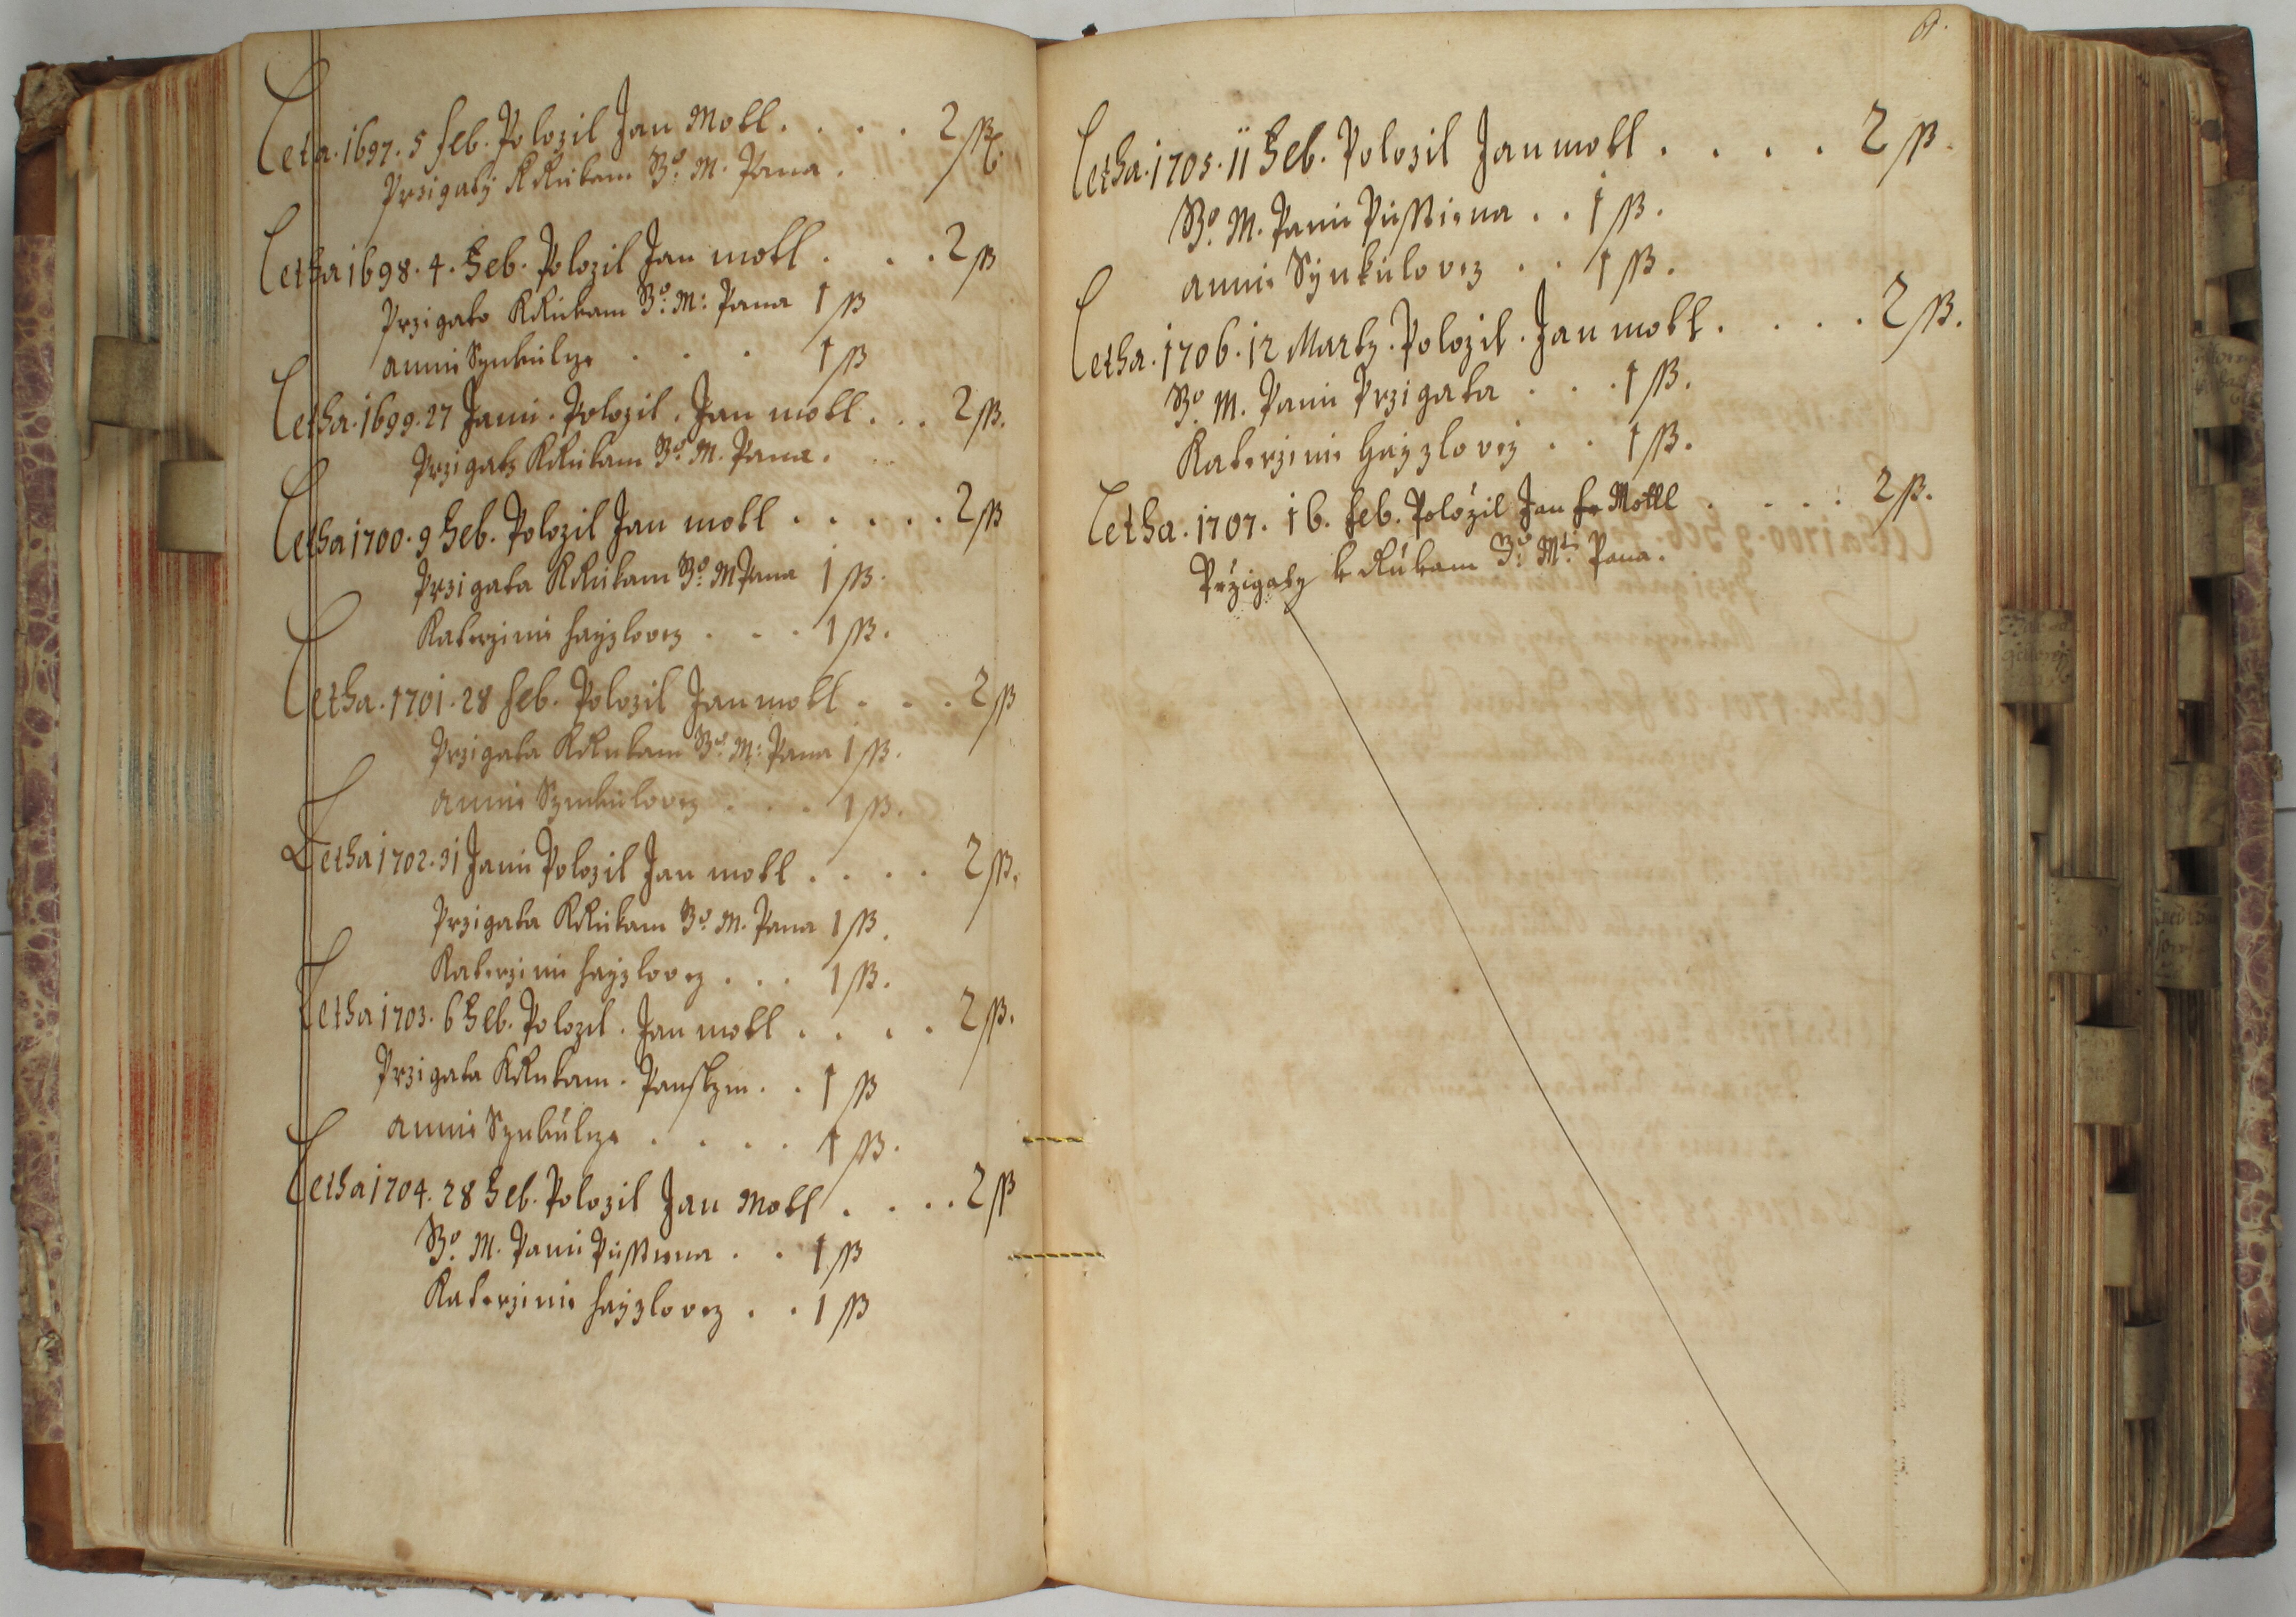 Letha. 1697. 5 feb. Polozil Jan Motl . . . . 2 ß
Przigaty k Rukam Bo. M. Pana .
Letha 1698. 4. Feb. Polozil Jan motl . . . 2 ß
Przigato k Rukam Bo. M: Pana 1 ß
annie Synkulcze . . . 1 ß
Letha. 1699. 27 Janu. Polozil. Jan motl . . . 2 ß.
Przigaty k Rukam Bo. M. Pana.
Letha 1700. 9 Feb. Polozil Jan motl . . . . . 2 ß
Przigata k Rukam Bo. M Pana 1 ß.
Katerzinie hayzlovez . . . 1 ß.
Letha. 1701. 28 feb. Polozil Jan motl . . . 2 ß
Przigata k Rukam Bo. M: Pana 1 ß.
annie Synkulovez . . . 1 ß.
Letha 1702. 31 Janu Polozil Jan motl . . . . 2 ß.
Przigata k Rukam Bo. M. Pana 1 ß.
Katerzinie hayzlovez . . . 1 ß.
Letha 1703. 6 Feb. Polozil. Jan motl . . . . 2 ß.
Przigata k Rukam. Panskym . . 1 ß
annie Synkulcze . . . . 1 ß.
Letha 1704. 28 Feb. Polozil Jan Motl . . . . 2 ß
Bo. M. Panu Pusstiena . . 1 ß
Katerzinie hayzlovez . . 1 ß
Letha. 1705. 11 Feb. Polozil Jan motl . . . . 2 ß.
Bo. M. Panu Pusstiena . . 1 ß.
annie Synkulovez . . 1 ß.
Letha. 1706. 12 Marty. Polozil. Jan motl . . . . 2 ß.
Bo. M. Panu Przigata . . . 1 ß.
Katerzinie Hayzlovez . . 1 ß.
Letha. 1707. 16. feb. Polozil Jan Mottl . . . . 2 ß.
Przigaty k Rukam Bo. Mti. Pana.